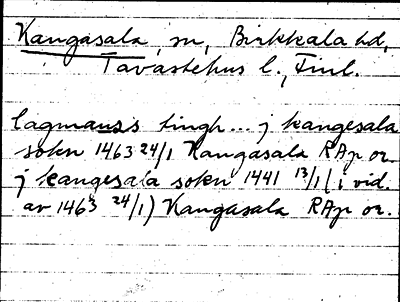 Kangasala sn, Birkkala hd,
Tavastehus l., Finl.
lagmanss tingh ... j kangesala
sokn 1463 24/1 Kangasala RAp or.
j kangesala sokn 1441 13/1 (i vid.
av 1463 24/1) Kangasala RAp or.